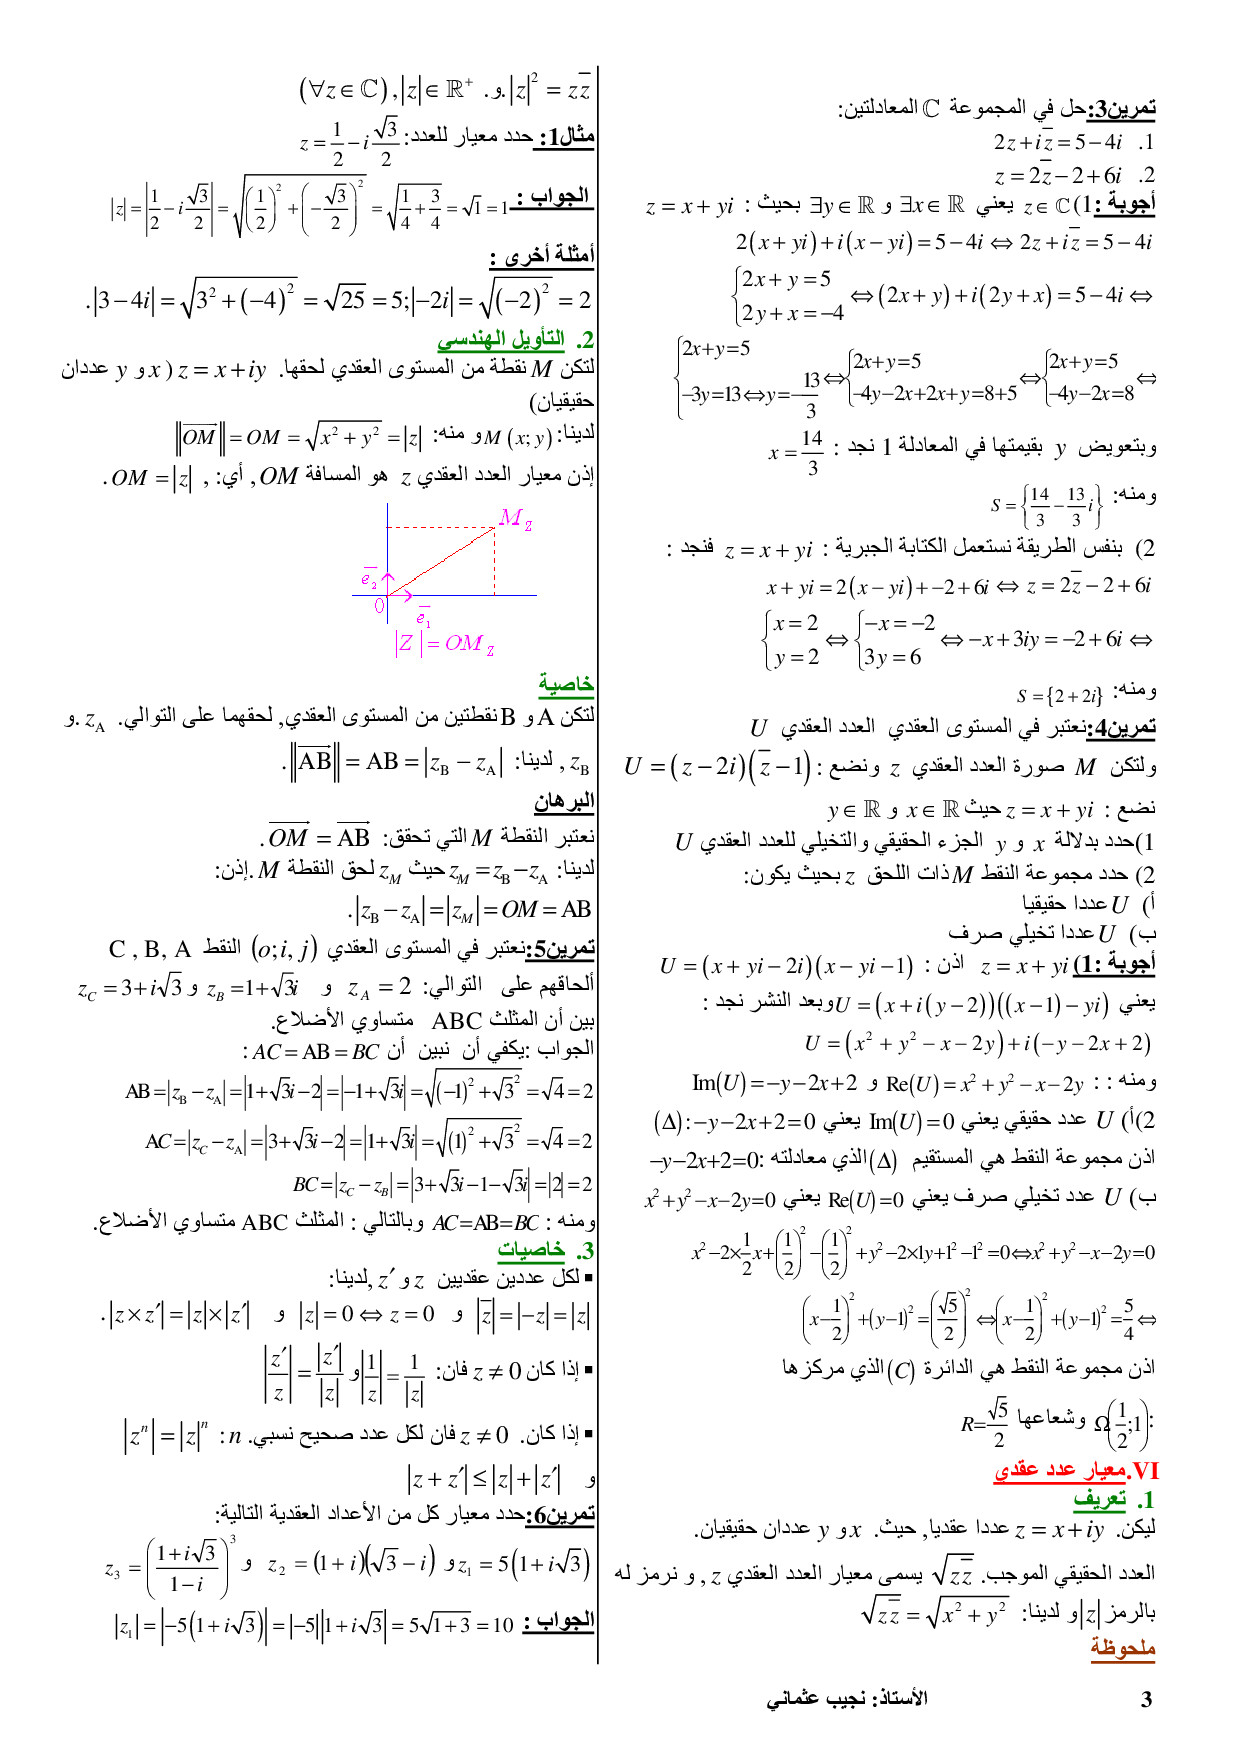 تمرين3:حل في المجموعة ℂ المعادلتين:
1. 2z + i z̄ = 5 − 4i
2. z = 2z̄ − 2 + 6i
أجوبة :1) z ∈ ℂ يعني ∃x ∈ ℝ و ∃y ∈ ℝ بحيث : z = x + yi
2(x + yi) + i(x − yi) = 5 − 4i ⇔ 2z + i z̄ = 5 − 4i
{2x + y = 5 ; 2y + x = −4 ⇔ (2x + y) + i(2y + x) = 5 − 4i ⇔
{2x+y=5 ; −3y=13⇔y=−13/3 ⇔ {2x+y=5 ; −4y−2x+2x+y=8+5 ⇔ {2x+y=5 ; −4y−2x=8 ⇔
وبتعويض y بقيمتها في المعادلة 1 نجد : x = 14/3
ومنه: S = {14/3 − 13/3 i}
2) بنفس الطريقة نستعمل الكتابة الجبرية : z = x + yi فنجد :
x + yi = 2(x − yi) + −2 + 6i ⇔ z = 2z̄ − 2 + 6i
{x = 2 ; y = 2 ⇔ {−x = −2 ; 3y = 6 ⇔ −x + 3iy = −2 + 6i ⇔
ومنه: S = {2 + 2i}
تمرين4:نعتبر في المستوى العقدي العدد العقدي U
ولتكن M صورة العدد العقدي z ونضع : U = (z − 2i)(z̄ − 1)
نضع : z = x + yi حيث x ∈ ℝ و y ∈ ℝ
1)حدد بدلالة x و y الجزء الحقيقي والتخيلي للعدد العقدي U
2) حدد مجموعة النقط M ذات اللحق z بحيث يكون:
أ) U عددا حقيقيا
ب) U عددا تخيلي صرف
أجوبة :1) z = x + yi اذن : U = (x + yi − 2i)(x − yi − 1)
يعني U = (x + i(y − 2))((x − 1) − yi) وبعد النشر نجد :
U = (x² + y² − x − 2y) + i(−y − 2x + 2)
ومنه : : Re(U) = x² + y² − x − 2y و Im(U) = −y − 2x + 2
2)أ) U عدد حقيقي يعني Im(U) = 0 يعني (Δ): −y − 2x + 2 = 0
اذن مجموعة النقط هي المستقيم (Δ) الذي معادلته :−y−2x+2=0
ب) U عدد تخيلي صرف يعني Re(U) = 0 يعني x²+y²−x−2y=0
x²−2×1/2 x+(1/2)²−(1/2)²+y²−2×1y+1²−1²=0⇔x²+y²−x−2y=0
(x−1/2)²+(y−1)²=(√5/2)² ⇔(x−1/2)²+(y−1)²=5/4 ⇔
اذن مجموعة النقط هي الدائرة (C) الذي مركزها
:Ω(1/2;1) وشعاعها R=√5/2
VI.معيار عدد عقدي
1. تعريف
ليكن. z = x + iy عددا عقديا, حيث. x و y عددان حقيقيان.
العدد الحقيقي الموجب. √(z z̄) يسمى معيار العدد العقدي z , و نرمز له
بالرمز |z| و لدينا: √(z z̄) = √(x² + y²)
ملحوظة
(∀z ∈ ℂ), |z| ∈ ℝ⁺ .و. |z|² = z z̄
مثال1: حدد معيار للعدد: z = 1/2 − i √3/2
الجواب : |z| = |1/2 − i √3/2| = √((1/2)² + (−√3/2)²) = √(1/4 + 3/4) = √1 = 1
أمثلة أخرى :
.|3 − 4i| = √(3² + (−4)²) = √25 = 5; |−2i| = √((−2)²) = 2
2. التأويل الهندسي
لتكن M نقطة من المستوى العقدي لحقها. z = x + iy ( x و y عددان
حقيقيان)
لدينا: M(x; y) و منه: ‖OM⃗‖ = OM = √(x² + y²) = |z|
إذن معيار العدد العقدي z هو المسافة OM, أي: , OM = |z| .
M_Z
e₂
O
e₁
|Z| = OM_Z
خاصية
لتكن A و B نقطتين من المستوى العقدي, لحقهما على التوالي. z_A .و
z_B , لدينا: ‖AB⃗‖ = AB = |z_B − z_A| .
البرهان
نعتبر النقطة M التي تحقق: OM⃗ = AB⃗ .
لدينا: z_M = z_B − z_A حيث z_M لحق النقطة M .إذن:
.|z_B − z_A| = |z_M| = OM = AB
تمرين5:نعتبر في المستوى العقدي (o; i, j) النقط C , B, A
ألحاقهم على التوالي: z_A = 2 و z_B = 1+√3i و z_C = 3+i√3
بين أن المثلث ABC متساوي الأضلاع.
الجواب :يكفي أن نبين أن AC = AB = BC :
AB = |z_B − z_A| = |1+√3i−2| = |−1+√3i| = √((−1)²+√3²) = √4 = 2
AC = |z_C − z_A| = |3+√3i−2| = |1+√3i| = √((1)²+√3²) = √4 = 2
BC = |z_C − z_B| = |3+√3i−1−√3i| = |2| = 2
ومنه : AC=AB=BC وبالتالي : المثلث ABC متساوي الأضلاع.
3. خاصيات
▪ لكل عددين عقديين z و z′, لدينا:
|z̄| = |−z| = |z| و |z| = 0 ⇔ z = 0 و |z × z′| = |z| × |z′| .
▪ إذا كان z ≠ 0 فان: |1/z| = 1/|z| و |z′/z| = |z′|/|z|
▪ إذا كان. z ≠ 0 فان لكل عدد صحيح نسبي. n : |zⁿ| = |z|ⁿ
و |z + z′| ≤ |z| + |z′|
تمرين6:حدد معيار كل من الأعداد العقدية التالية:
z₁ = 5(1 + i√3) و z₂ = (1 + i)(√3 − i) و z₃ = ((1 + i√3)/(1 − i))³
الجواب : |z₁| = |−5(1 + i√3)| = |−5||1 + i√3| = 5√(1+3) = 10
الأستاذ: نجيب عثماني
3